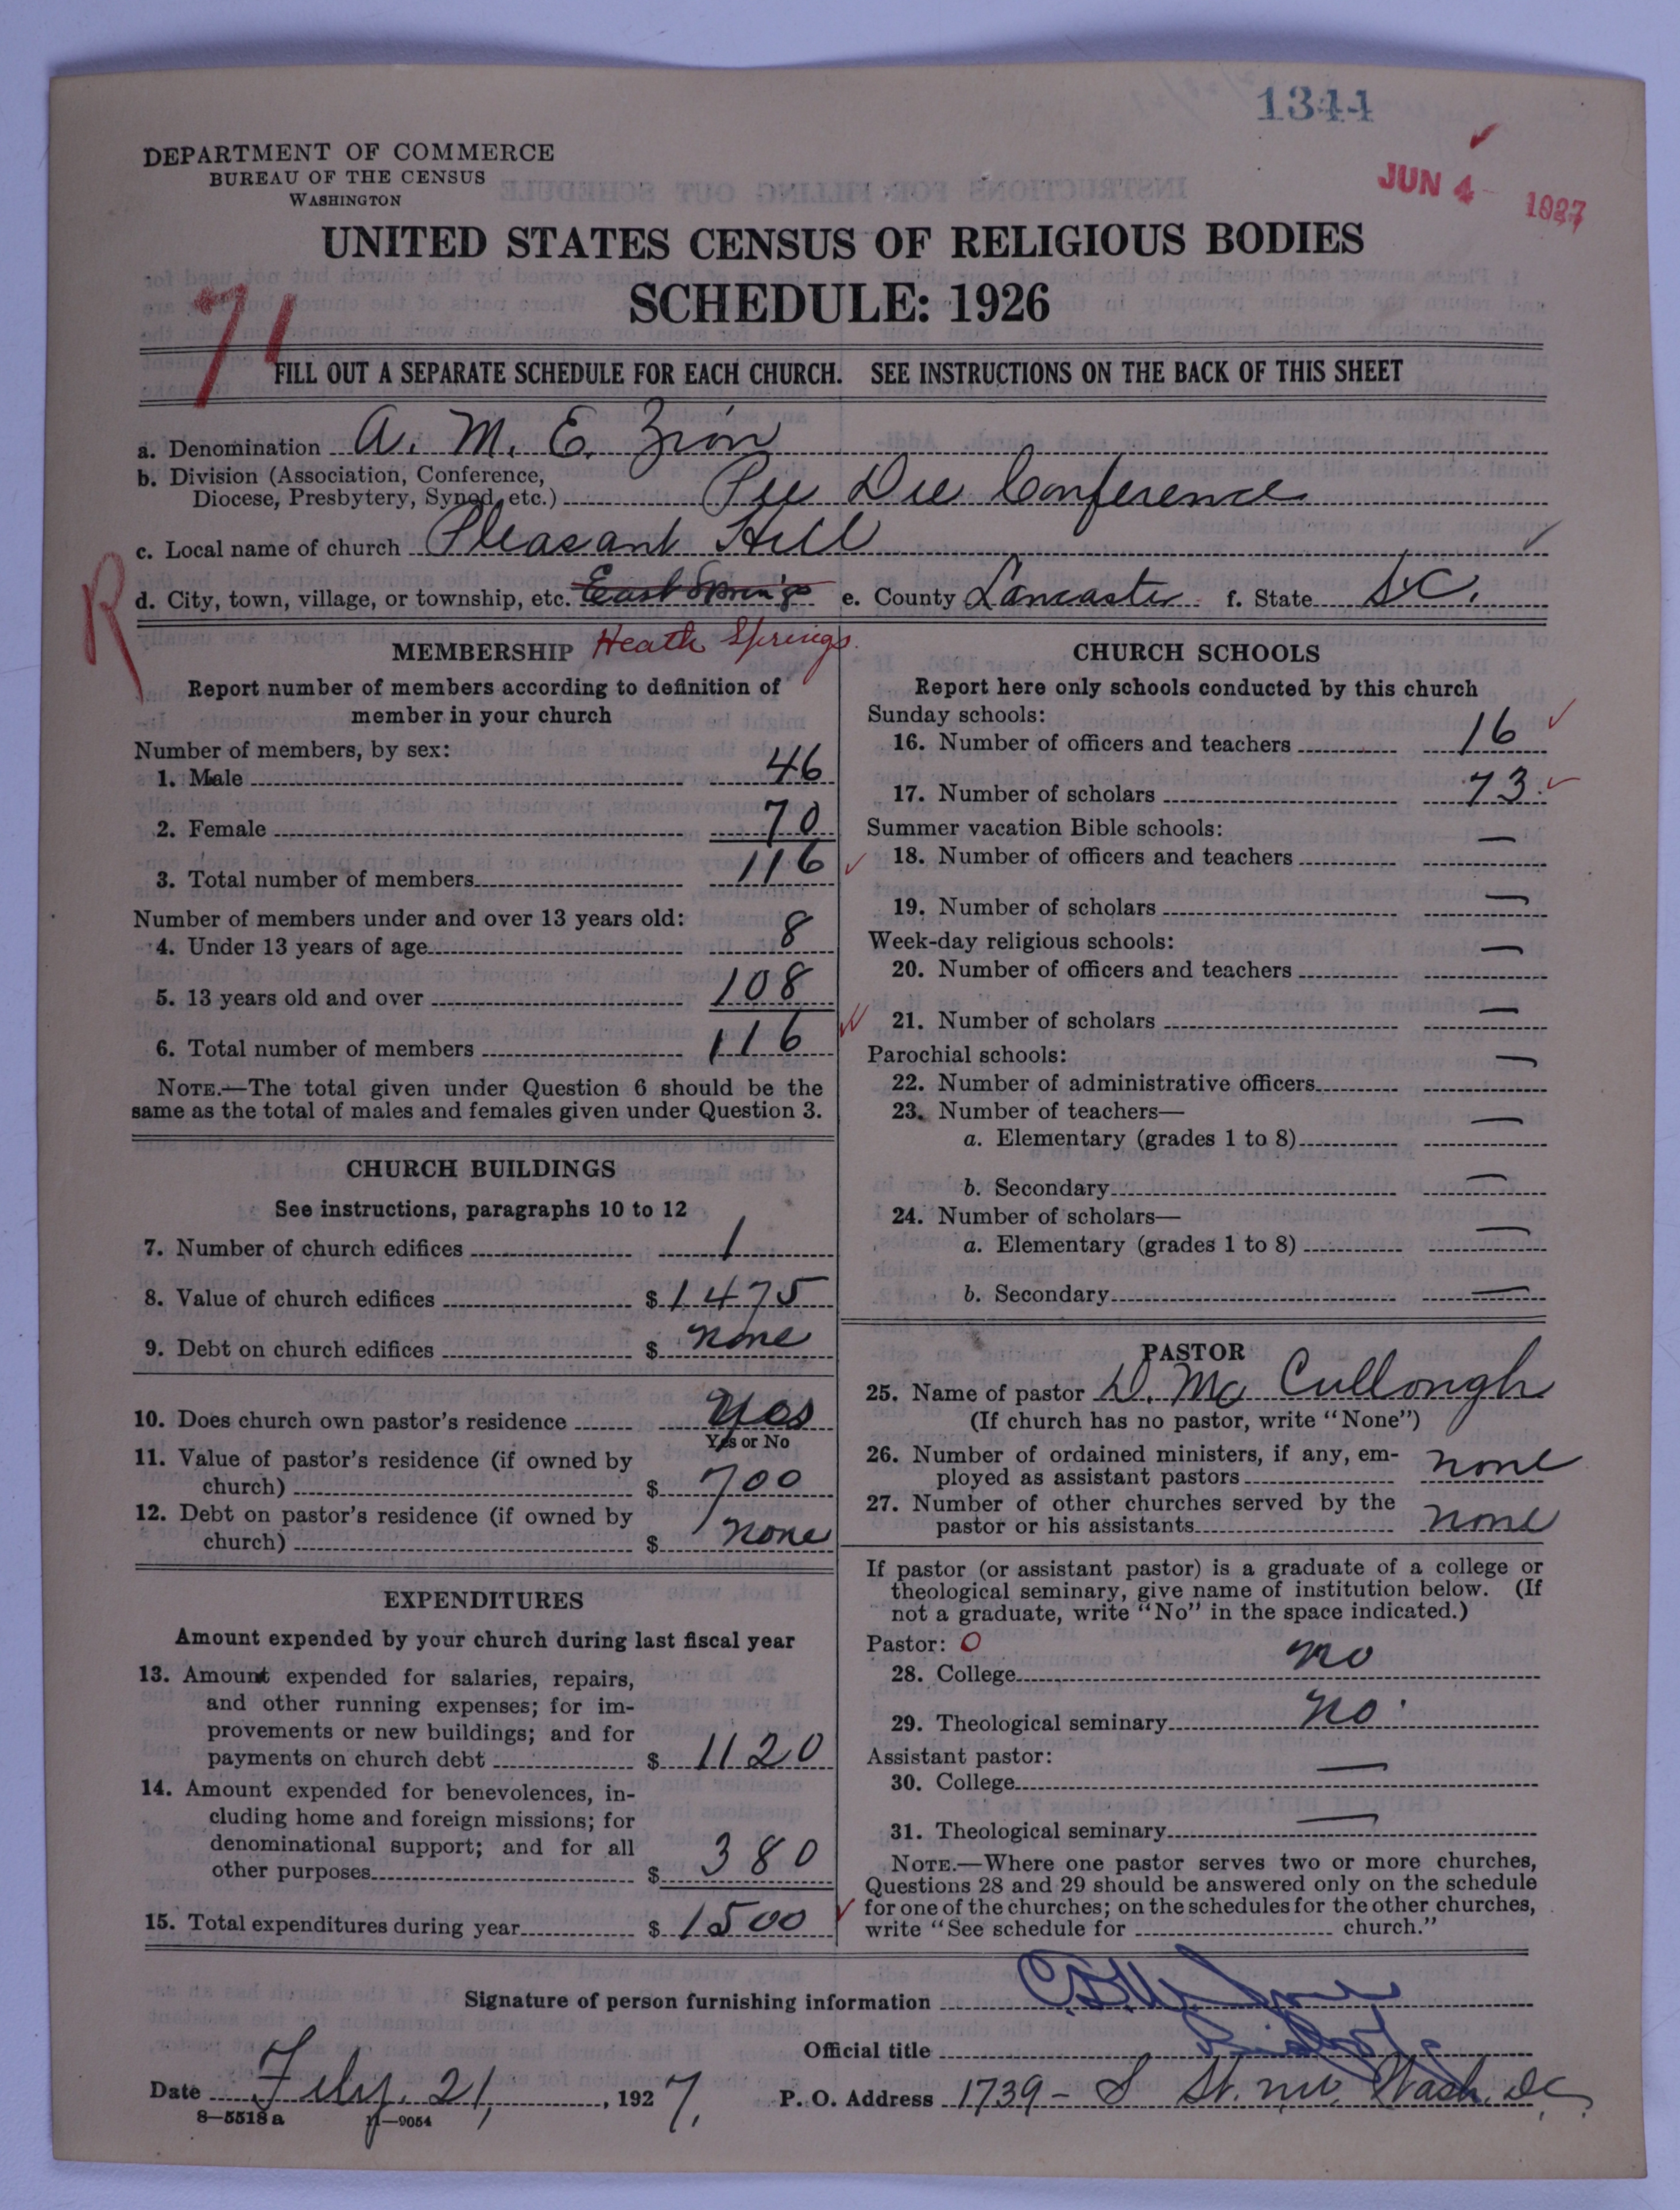 1344
JUN 4 1927
DEPARTMENT OF COMMERCE
BUREAU OF THE CENSUS
WASHINGTON
UNITED STATES CENSUS OF RELIGIOUS BODIES
SCHEDULE: 1926
71
FILL OUT A SEPARATE SCHEDULE FOR EACH CHURCH. SEE INSTRUCTIONS ON THE BACK OF THIS SHEET
a. Denomination A. M. E. Zion
b. Division (Association, Conference,
Diocese, Presbytery, Synod, etc.) Pee Dee Conference
c. Local name of church Pleasant Hill
R
d. City, town, village, or township, etc. East Springs e. County Lancaster f. State S.C.
Heath Springs.
MEMBERSHIP
Report number of members according to definition of
member in your church
Number of members, by sex:
1. Male 46
2. Female 70
3. Total number of members 116
Number of members under and over 13 years old:
4. Under 13 years of age 8
5. 13 years old and over 108
6. Total number of members 116
NOTE.—The total given under Question 6 should be the
same as the total of males and females given under Question 3.
CHURCH BUILDINGS
See instructions, paragraphs 10 to 12
7. Number of church edifices 1
8. Value of church edifices $1475
9. Debt on church edifices $ none
10. Does church own pastor's residence Yes
Yes or No
11. Value of pastor's residence (if owned by
church) $ 700
12. Debt on pastor's residence (if owned by
church) $ none
EXPENDITURES
Amount expended by your church during last fiscal year
13. Amount expended for salaries, repairs,
and other running expenses; for im-
provements or new buildings; and for
payments on church debt $ 1120
14. Amount expended for benevolences, in-
cluding home and foreign missions; for
denominational support; and for all
other purposes $ 380
15. Total expenditures during year $ 1500
CHURCH SCHOOLS
Report here only schools conducted by this church
Sunday schools:
16. Number of officers and teachers 16
17. Number of scholars 73
Summer vacation Bible schools:
18. Number of officers and teachers —
19. Number of scholars —
Week-day religious schools:
20. Number of officers and teachers —
21. Number of scholars —
Parochial schools:
22. Number of administrative officers —
23. Number of teachers—
a. Elementary (grades 1 to 8) —
b. Secondary —
24. Number of scholars—
a. Elementary (grades 1 to 8) —
b. Secondary —
PASTOR
25. Name of pastor D. Mc Cullough
(If church has no pastor, write "None")
26. Number of ordained ministers, if any, em-
ployed as assistant pastors none
27. Number of other churches served by the
pastor or his assistants none
If pastor (or assistant pastor) is a graduate of a college or
theological seminary, give name of institution below. (If
not a graduate, write "No" in the space indicated.)
Pastor: O
28. College no
29. Theological seminary no.
Assistant pastor:
30. College —
31. Theological seminary —
NOTE.—Where one pastor serves two or more churches,
Questions 28 and 29 should be answered only on the schedule
for one of the churches; on the schedules for the other churches,
write "See schedule for church."
Signature of person furnishing information
Official title Bishop
Date Feby. 21, 1927, P. O. Address 1739 - S St. nw. Wash. DC.
8-5518a 11-9054